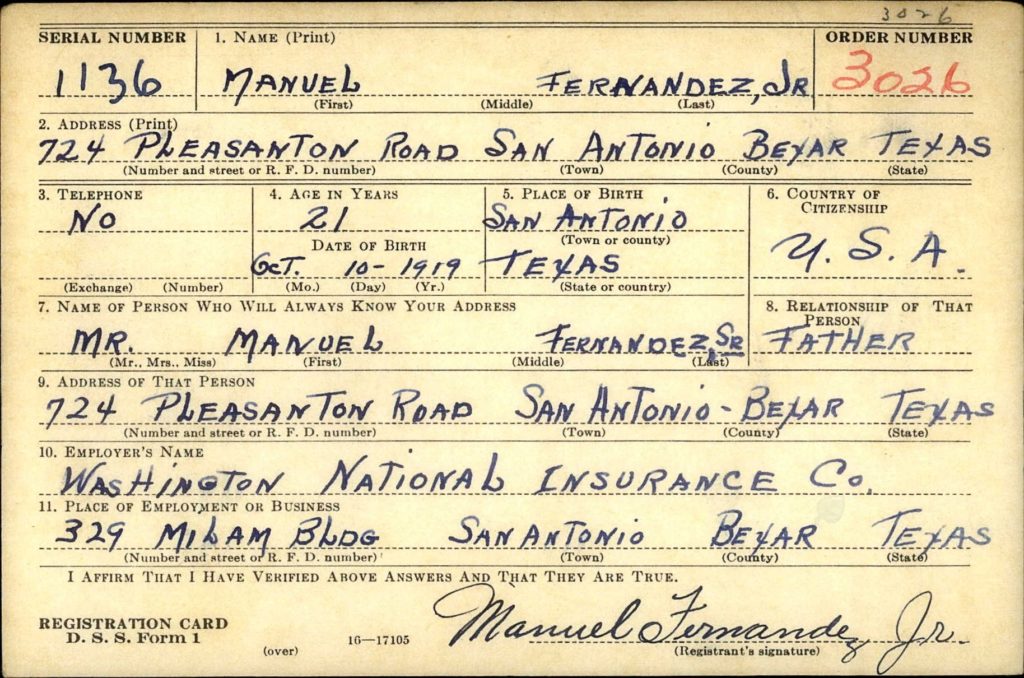 3026
SERIAL NUMBER 1. NAME (Print) ORDER NUMBER
1136 MANUEL FERNANDEZ, JR 3026
(First) (Middle) (Last)
2. ADDRESS (Print)
724 PLEASANTON ROAD SAN ANTONIO BEXAR TEXAS
(Number and street or R. F. D. number) (Town) (County) (State)
3. TELEPHONE 4. AGE IN YEARS 5. PLACE OF BIRTH 6. COUNTRY OF CITIZENSHIP
NO 21 SAN ANTONIO U. S. A.
DATE OF BIRTH (Town or county)
OCT. 10- 1919 TEXAS
(Exchange) (Number) (Mo.) (Day) (Yr.) (State or country)
7. NAME OF PERSON WHO WILL ALWAYS KNOW YOUR ADDRESS 8. RELATIONSHIP OF THAT PERSON
MR. MANUEL FERNANDEZ, SR FATHER
(Mr., Mrs., Miss) (First) (Middle) (Last)
9. ADDRESS OF THAT PERSON
724 PLEASANTON ROAD SAN ANTONIO - BEXAR TEXAS
(Number and street or R. F. D. number) (Town) (County) (State)
10. EMPLOYER'S NAME
WASHINGTON NATIONAL INSURANCE CO.
11. PLACE OF EMPLOYMENT OR BUSINESS
329 MILAM BLDG SAN ANTONIO BEXAR TEXAS
(Number and street or R. F. D. number) (Town) (County) (State)
I AFFIRM THAT I HAVE VERIFIED ABOVE ANSWERS AND THAT THEY ARE TRUE.
REGISTRATION CARD Manuel Fernandez Jr.
D. S. S. Form 1 16—17105
(over) (Registrant's signature)